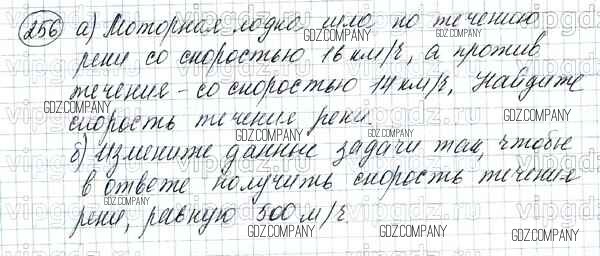 256 а) Моторная лодка шла по течению
реки со скоростью 16 км/ч, а против
течения - со скоростью 14 км/ч. Найдите
скорость течения реки.
б) Измените данные задачи так, чтобы
в ответе получить скорость течения
реки, равную 500 м/ч.